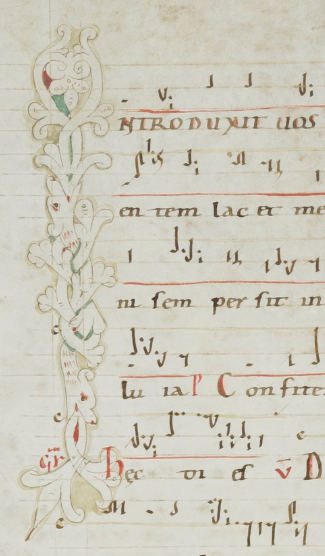 INTRODUXIT UOS
en tem lac et me
ni sem per sit in
lu ia P Confite
GR Hęc di es V D